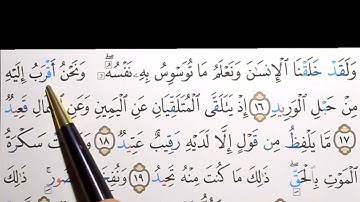 وَلَقَدْ خَلَقْنَا ٱلْإِنسَـٰنَ وَنَعْلَمُ مَا تُوَسْوِسُ بِهِۦ نَفْسُهُۥ ۖ وَنَحْنُ أَقْرَبُ إِلَيْهِ
مِنْ حَبْلِ ٱلْوَرِيدِ ١٦ إِذْ يَتَلَقَّى ٱلْمُتَلَقِّيَانِ عَنِ ٱلْيَمِينِ وَعَنِ قَعِيدٌ
١٧ مَّا يَلْفِظُ مِن قَوْلٍ إِلَّا لَدَيْهِ رَقِيبٌ عَتِيدٌ ١٨ سَكْرَةُ
ٱلْمَوْتِ بِٱلْحَقِّ ۖ ذَٰلِكَ مَا كُنتَ مِنْهُ تَحِيدُ ١٩ وَنُفِخَ ذَٰلِكَ